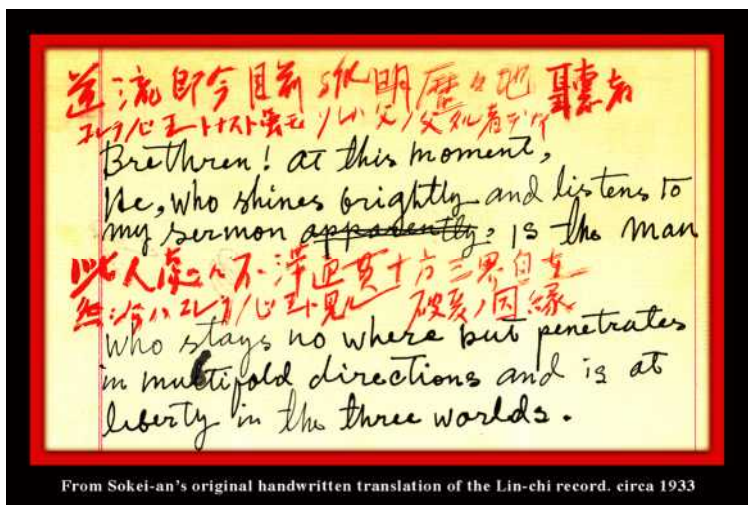 道流即今目前孤明歴々地聽者
コレラ心王トナスト
Brethren! at this moment,
He, who shines brightly and listens to
my sermon apparently, is the man
此人處々不滞通貫十方三界自在
コレヲ心王ト見ル 因縁
who stays no where but penetrates
in multifold directions and is at
liberty in the three worlds.
From Sokei-an's original handwritten translation of the Lin-chi record. circa 1933